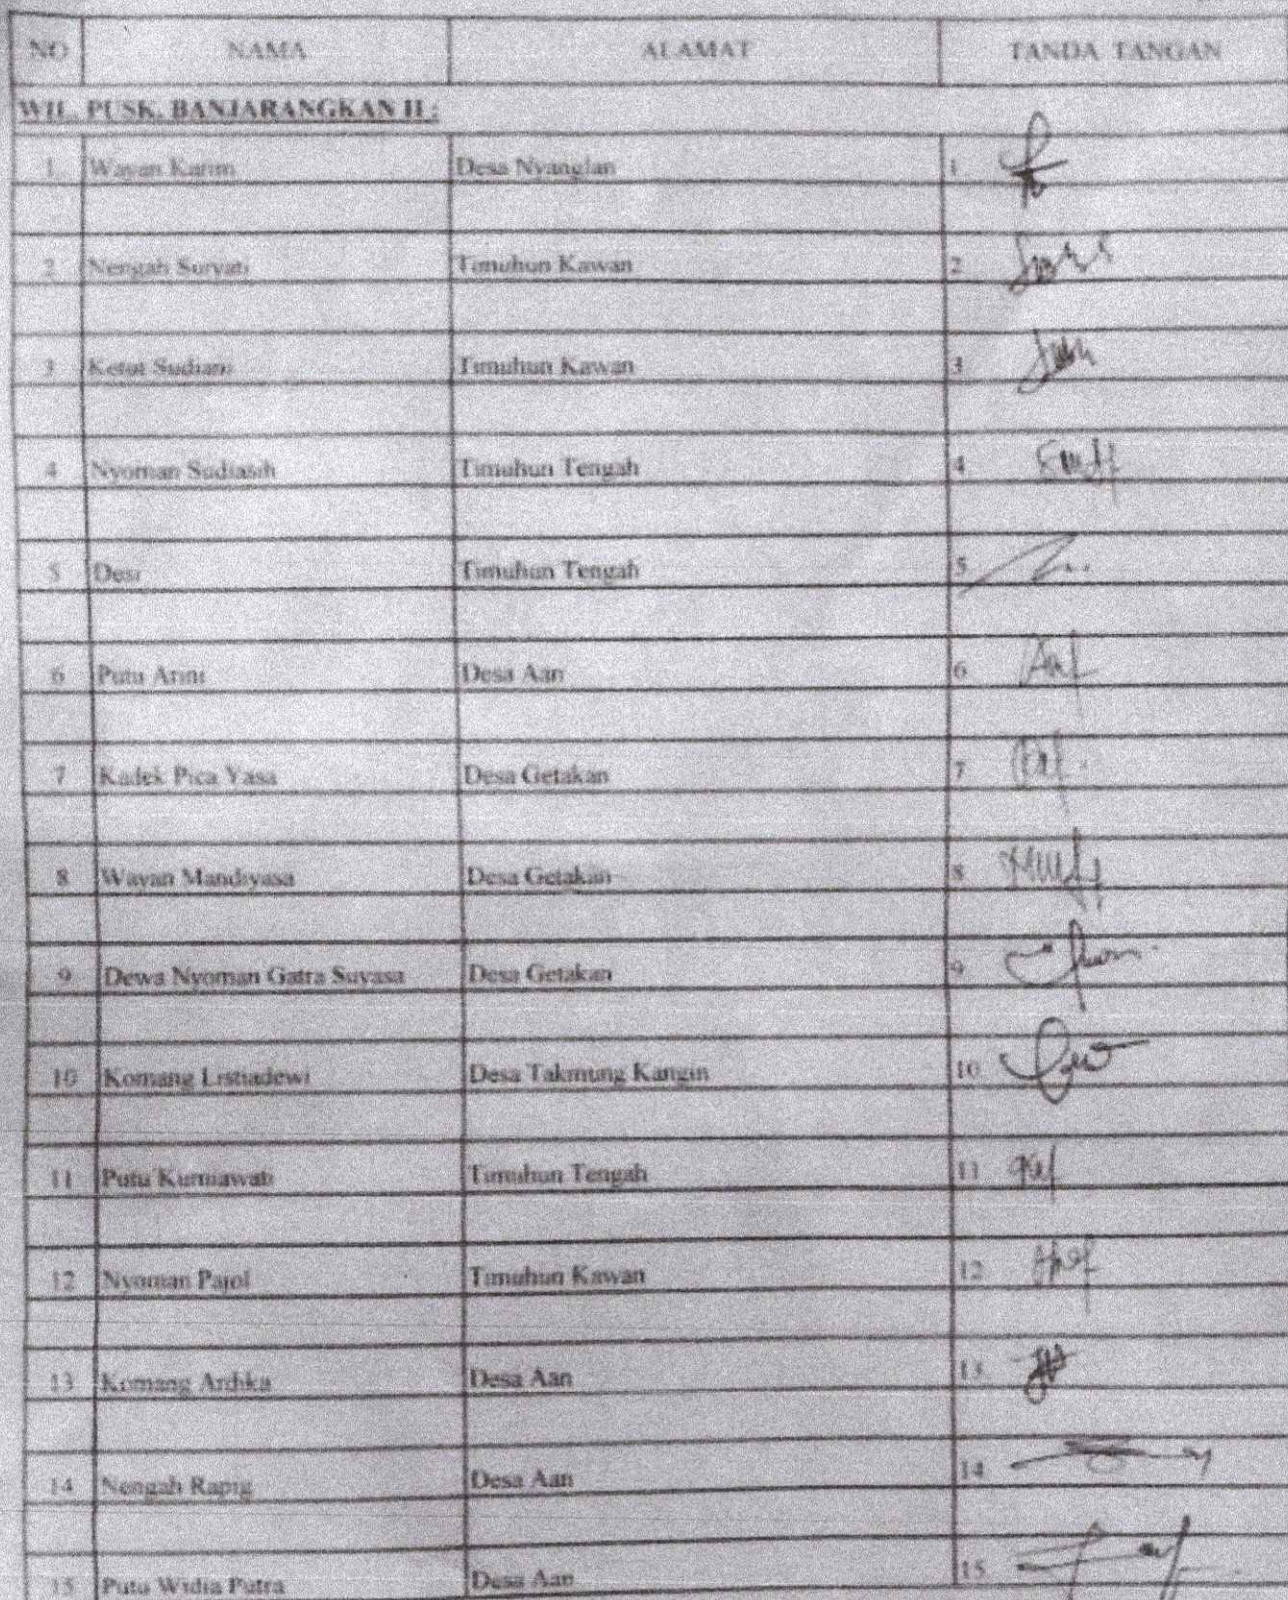 NO NAMA ALAMAT TANDA TANGAN
WIL. PUSK. BANJARANGKAN II :
1 Wayan Karim Desa Nyanglan 1
2 Nengah Suryati Timuhun Kawan 2
3 Ketut Sudiani Timuhun Kawan 3
4 Nyoman Sudiasih Timuhun Tengah 4
5 Desi Timuhun Tengah 5
6 Putu Arini Desa Aan 6
7 Kadek Pica Yasa Desa Getakan 7
8 Wayan Mandiyasa Desa Getakan 8
9 Dewa Nyoman Gatra Suyasa Desa Getakan 9
10 Komang Desa Takmung Kangin 10
11 Putu Kurniawati Timuhun Tengah 11
12 Nyoman Pajol Timuhun Kawan 12
13 Komang Ardika Desa Aan 13
14 Nengah Rapig Desa Aan 14
15 Putu Widia Putra Desa Aan 15